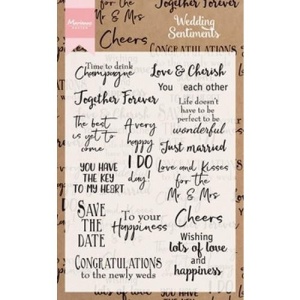 Marianne
Wedding
Sentiments
Mr & Mrs
Cheers
CONGRATULATIONS
Time to drink
Champagne
Together Forever
The best
is yet to
come
A very
happy
I DO
day!
YOU HAVE
THE KEY
TO MY HEART
SAVE
THE
DATE
To your
Happiness
CONGRATULATIONS
to the newly weds
Love & Cherish
You each other
Life doesn't
have to be
perfect to be
wonderful
Just married
Love and Kisses
for the
Mr & Mrs
Cheers
Wishing
lots of love
and
happiness